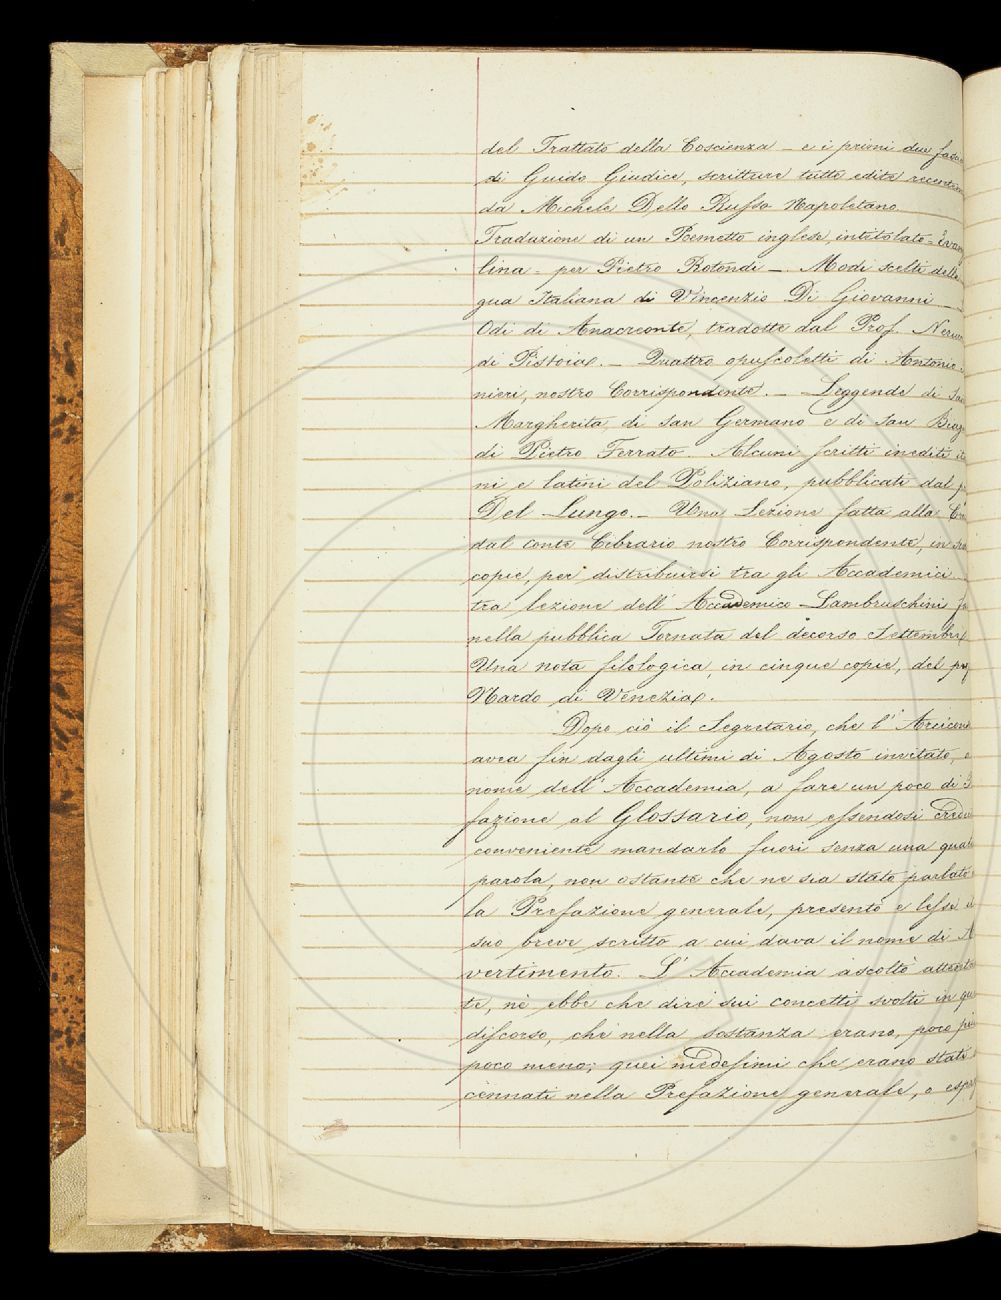 del Trattato della Coscienza – e i primi due fasc
di Guido Giudice, scritture tutte edite recentem
da Michele Dello Russo Napoletano.
Traduzione di un Poemetto inglese, intitolato = Evan
lina = per Pietro Rotondi –. Modi scelti della
gua Italiana di Vincenzio Di Giovanni –
Odi di Anacreonte, tradotte dal Prof. Neruc
di Pistoia. – Quattro opuscoletti di Antonio
nieri, nostro Corrispondente. – Leggende di San
Margherita, di San Germano e di San Biag
di Pietro Ferrato. Alcuni scritti inediti it
ni e latini del Poliziano, pubblicati dal p
Del Lungo. – Una Lezione fatta alla Cru
dal conte Cibrario nostro Corrispondente, in
copie, per distribuirsi tra gli Accademici
tra lezione dell' Accademico Lambruschini f
nella pubblica Tornata del decorso Settembre
Una nota filologica, in cinque copie, del p
Nardo di Venezia.
Dopo ciò il Segretario, che l' Arcicon
avea fin dagli ultimi di Agosto invitato, a
nome dell' Accademia, a fare un poco di
fazione al Glossario, non essendosi credu
conveniente mandarlo fuori senza una qual
parola, non ostante che ne sia stato parlato
la Prefazione generale, presentò e lesse
suo breve scritto a cui dava il nome di A
vertimento. L' Accademia ascoltò attenta
te, nè ebbe che dire sui concetti svolti in qu
discorso, che nella sostanza erano, poco pi
poco meno, quei medesimi che erano stati
cennati nella Prefazione generale, o espo